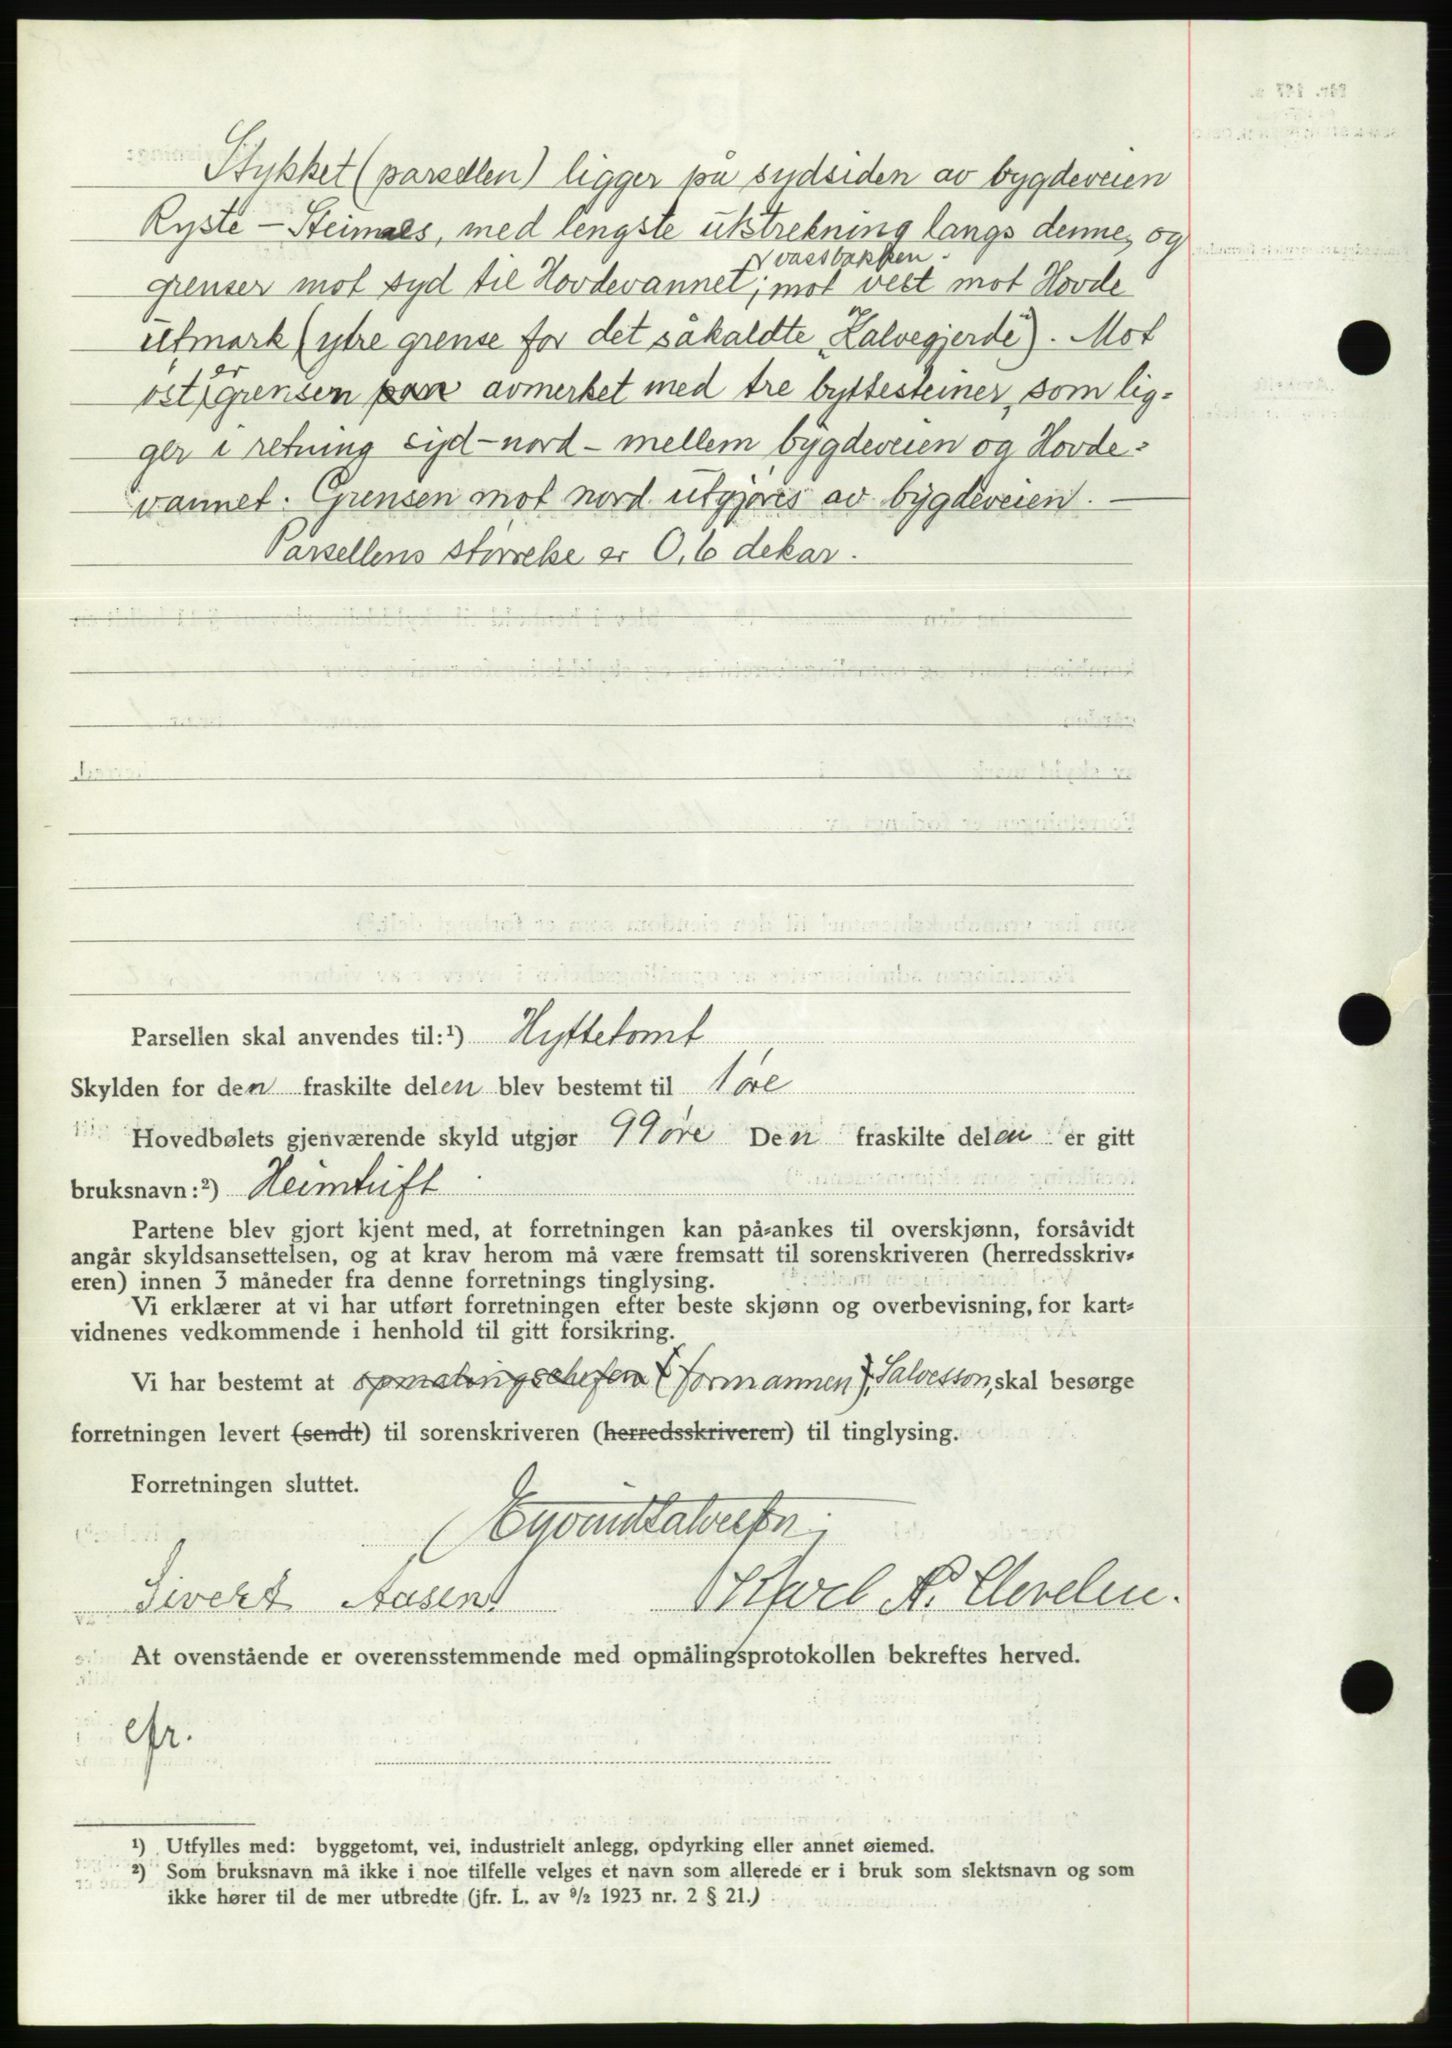 Stykket (parsellen) ligger på sydsiden av bygdeveien
Ryste – Steimnes, med lengste utstrekning langs denne, og
vassbakken
grenser mot syd til Hovdevannet; mot vest mot Hovde
utmark (ytre grense for det såkaldte „Kalvegjerde“). Mot
øst er grensen avmerket med tre byttesteiner, som lig-
ger i retning syd-nord – mellem bygdeveien og Hovde-
vannet. Grensen mot nord utgjøres av bygdeveien.
Parsellens størrelse er 0,6 dekar.
Parsellen skal anvendes til:¹) Hyttetomt
Skylden for den fraskilte delen blev bestemt til 1 øre
Hovedbølets gjenværende skyld utgjør 99 øre Den fraskilte delen er gitt
bruksnavn:²) Heimtuft
Partene blev gjort kjent med, at forretningen kan på-ankes til overskjønn, forsåvidt
angår skyldsansettelsen, og at krav herom må være fremsatt til sorenskriveren (herredsskriv-
eren) innen 3 måneder fra denne forretnings tinglysing.
Vi erklærer at vi har utført forretningen efter beste skjønn og overbevisning, for kart-
vidnenes vedkommende i henhold til gitt forsikring.
Vi har bestemt at opmålingschefen (formannen), Salvesson, skal besørge
forretningen levert (sendt) til sorenskriveren (herredsskriveren) til tinglysing.
Forretningen sluttet.
Eyvind Salvesson
Sivert Aasen Karl A. Clevelen.
At ovenstående er overensstemmende med opmålingsprotokollen bekreftes herved.
cfr.
¹) Utfylles med: byggetomt, vei, industrielt anlegg, opdyrking eller annet øiemed.
²) Som bruksnavn må ikke i noe tilfelle velges et navn som allerede er i bruk som slektsnavn og som
ikke hører til de mer utbredte (jfr. L. av ⁹/₂ 1923 nr. 2 § 21.)